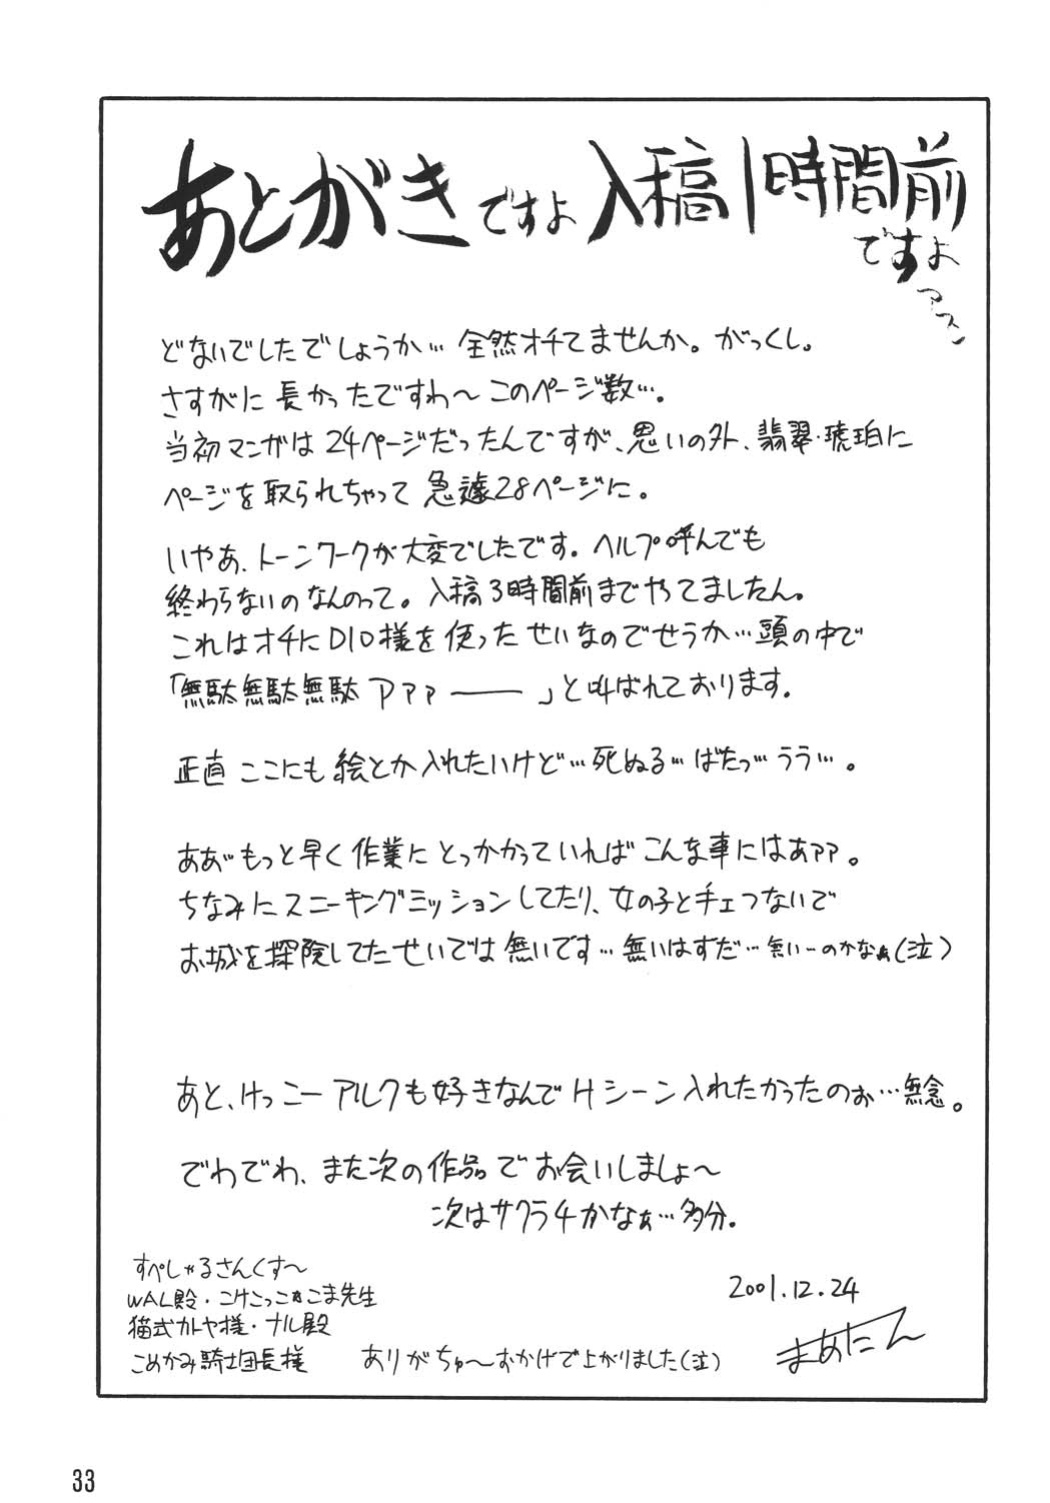 あとがきですよ 入稿1時間前
ですよ
アスン
どないでしたでしょうか… 全然オチてませんか。がっくし。
さすがに長かったですわ〜このページ数…。
当初マンガは24ページだったんですが、思いの外、翡翠・琥珀に
ページを取られちゃって急遽28ページに。
いやあ、トーンワークが大変でしたです。ヘルプ呼んでも
終わらないのなんのって。入稿3時間前までやてましたん。
これはオチにDIO様を使ったせいなのでせうか…頭の中で
「無駄無駄無駄アァァ――」と叫ばれております。
正直ここにも絵とか入れたいけど…死ぬる…ばたっ…うう…。
ああ゛もっと早く作業にとっかかっていればこんな事にはあァァ。
ちなみにスニーキングミッションしてたり、女の子と手つないで
お城を探険してたせいでは無いです…無いはずだ…無いーのかなぁ(泣)
あと、けっこーアルクも好きなんでHシーン入れたかったのぉ…無念。
でわでわ、また次の作品でお会いしましょ〜
次はサクラ4かなぁ…多分。
すぺしゃるさんくす〜
WAL殿・こけこっこ*こま先生
猫式カトヤ様・ナル殿
こめかみ騎士団長様 ありがちゅ〜おかげで上がりました(泣)
2001.12.24
まあたん
33